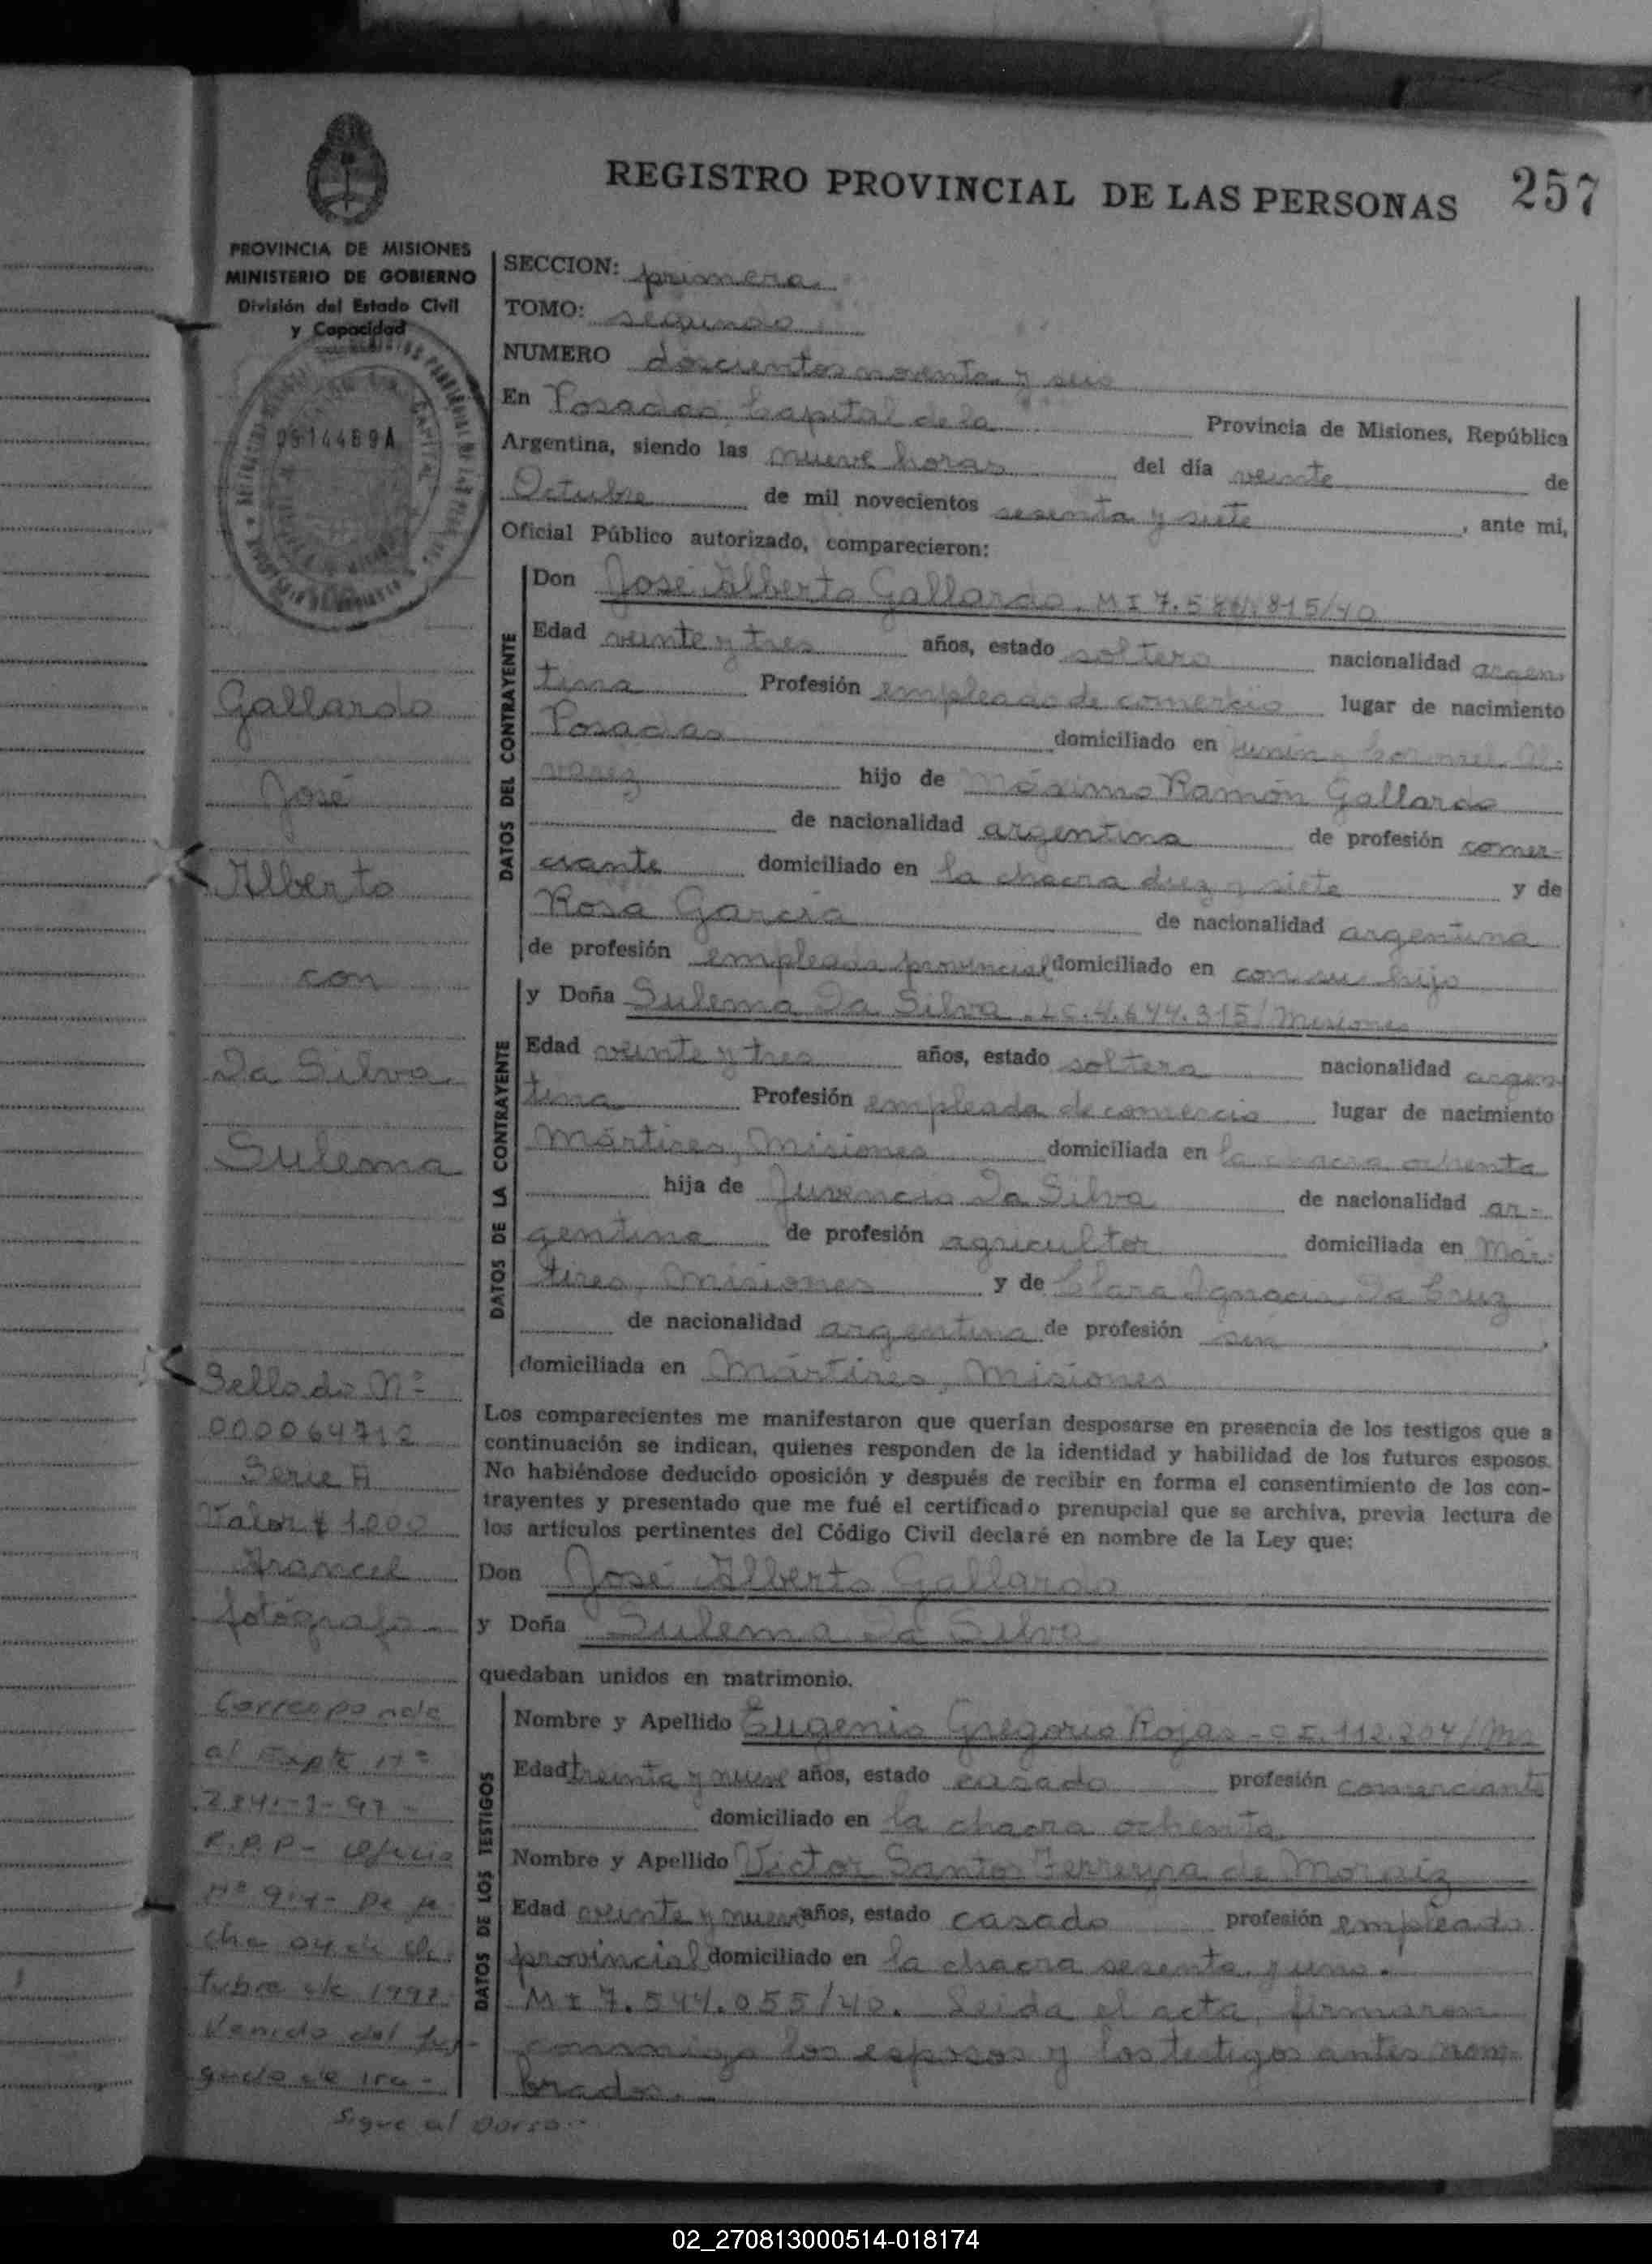 REGISTRO PROVINCIAL DE LAS PERSONAS
257
PROVINCIA DE MISIONES
MINISTERIO DE GOBIERNO
División del Estado Civil
y Capacidad
0914489A
Gallardo
José
Alberto
con
Da Silva
Sulema
Sellado Nº
000064712
Serie A
Valor $ 1.000
Arancel
fotógrafo
Corresponde
al Expte Nº
R.P.P- Oficio
Nº 914- De fe
cha 04 de Oc
tubre de 1997
Venido del Juz-
gado de 1ra-
Sigue al Dorso-
SECCION: primera
TOMO: segundo
NUMERO doscientos noventa y seis
En Posadas, Capital de la Provincia de Misiones, República
Argentina, siendo las nueve horas del día veinte de
Octubre de mil novecientos sesenta y siete, ante mi,
Oficial Público autorizado, comparecieron:
DATOS DEL CONTRAYENTE
Don José Alberto Gallardo. MI 7. 815/40
Edad veinte y tres años, estado soltero nacionalidad argen-
tina Profesión empleado de comercio lugar de nacimiento
Posadas domiciliado en Junín y Coronel Al-
varez hijo de Máximo Ramón Gallardo
de nacionalidad argentina de profesión comer-
ciante domiciliado en la chacra diez y siete y de
Rosa García de nacionalidad argentina
de profesión empleada provincial domiciliado en con su hijo
DATOS DE LA CONTRAYENTE
y Doña Sulema Da Silva. LC. 4.644.315/ Misiones
Edad veinte y tres años, estado soltera nacionalidad argen-
tina Profesión empleada de comercio lugar de nacimiento
Mártires, Misiones domiciliada en la chacra ochenta
hija de Juvencio Da Silva de nacionalidad ar-
gentina de profesión agricultor domiciliada en Már-
tires, Misiones y de Clara Ignacia Da Cruz
de nacionalidad argentina de profesión sin,
domiciliada en Mártires, Misiones
Los comparecientes me manifestaron que querían desposarse en presencia de los testigos que a
continuación se indican, quienes responden de la identidad y habilidad de los futuros esposos.
No habiéndose deducido oposición y después de recibir en forma el consentimiento de los con-
trayentes y presentado que me fué el certificado prenupcial que se archiva, previa lectura de
los artículos pertinentes del Código Civil declaré en nombre de la Ley que:
Don José Alberto Gallardo
y Doña Sulema Da Silva
quedaban unidos en matrimonio.
DATOS DE LOS TESTIGOS
Nombre y Apellido Eugenio Gregorio Rojas - CI. 112.204/Ms
Edad treinta y nueve años, estado casado profesión comerciante
domiciliado en la chacra ochenta
Nombre y Apellido Victor Santos Ferreyra de Moraiz
Edad veinte y nueve años, estado casado profesión empleado
provincial domiciliado en la chacra sesenta y uno.
MI 7.544.055/40. Leida el acta, firmaron
conmigo los esposos y los testigos antes nom-
brados.
02_270813000514-018174